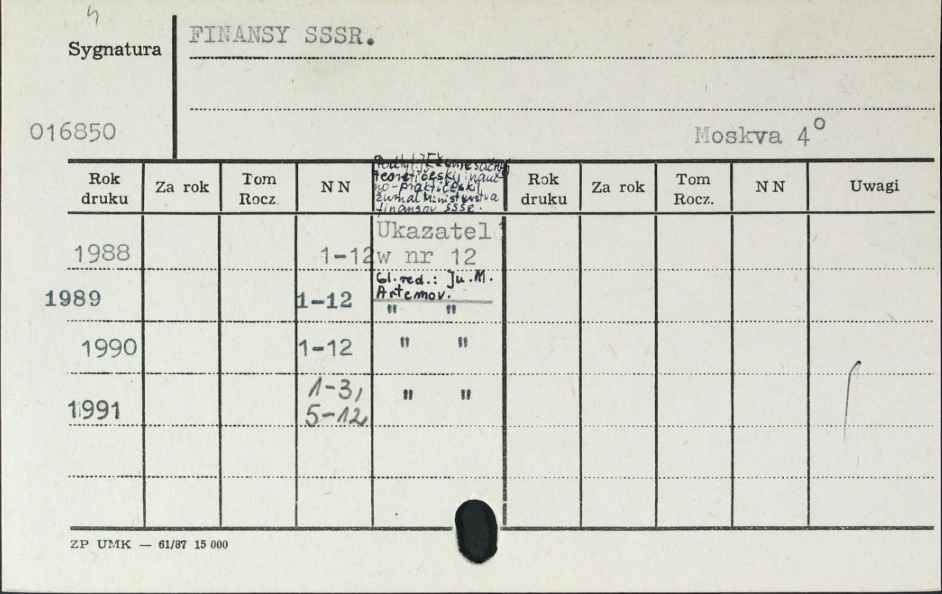 Sygnatura
FINANSY SSSR.
016850
Moskva 4°
Rok druku
Za rok
Tom Rocz.
NN
teoretičeskij nauč-
no-praktičeskij
žurnal Ministerstva
finansov SSSR.
Rok druku
Za rok
Tom Rocz.
NN
Uwagi
Ukazatel'
1988 1-12 w nr 12
Gl. red.: Ju. M.
Artemov.
1989 1-12 " "
1990 1-12 " "
1-3,
1991 " "
5-12,
ZP UMK — 61/87 15 000